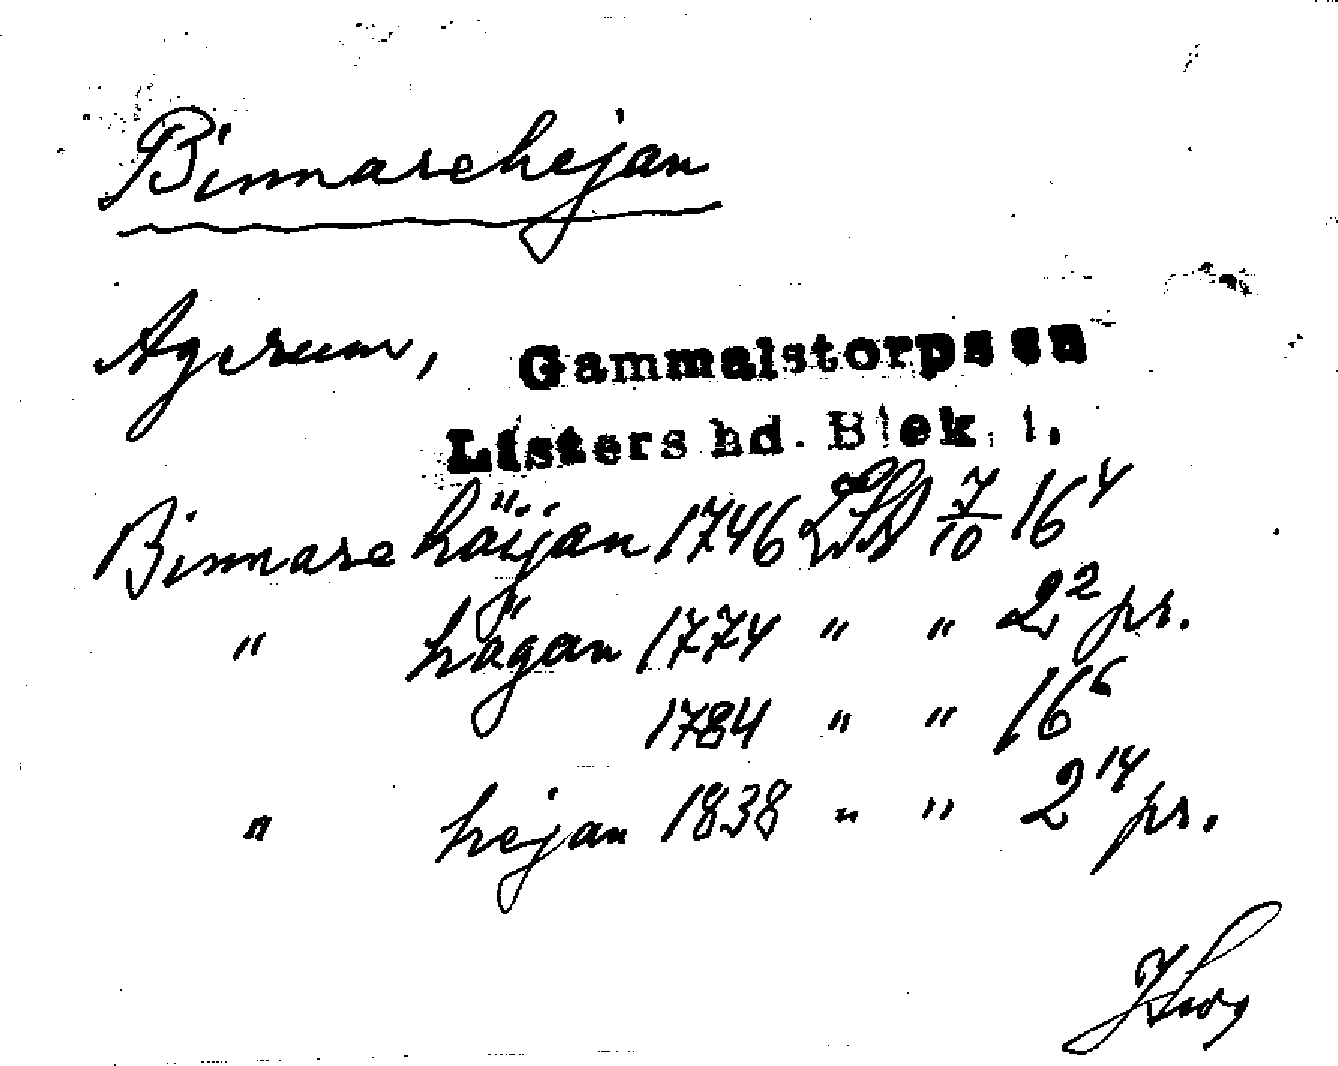 Binnarehejan
Agerum, Gammalstorps sn
Listers hd. Blek. l.
Binnare häijan 1746 LSA 7/10 16⁴
" hägan 1774 " " 2² pr.
1784 " " 16⁶
" hejan 1838 " " 2¹⁴ pr.